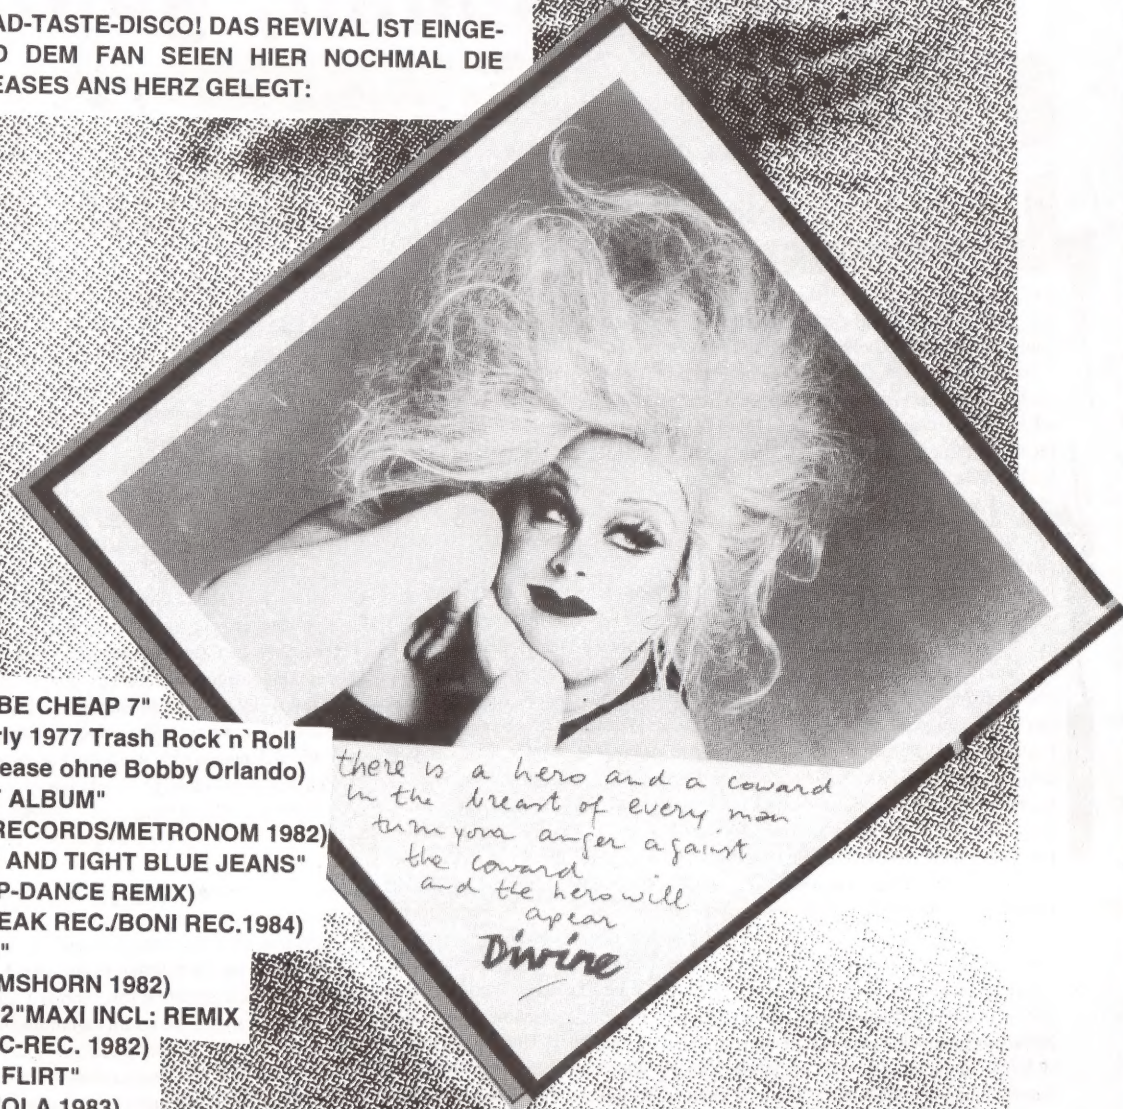 AD-TASTE-DISCO! DAS REVIVAL IST EINGE-
D DEM FAN SEIEN HIER NOCHMAL DIE
EASES ANS HERZ GELEGT:
BE CHEAP 7"
rly 1977 Trash Rock`n`Roll
ease ohne Bobby Orlando)
ALBUM"
RECORDS/METRONOM 1982)
AND TIGHT BLUE JEANS"
P-DANCE REMIX)
EAK REC./BONI REC.1984)
"
MSHORN 1982)
2"MAXI INCL: REMIX
C-REC. 1982)
FLIRT"
OLA 1983)
there is a hero and a coward
in the breast of every man
turn your anger against
the coward
and the hero will
apear
Divine